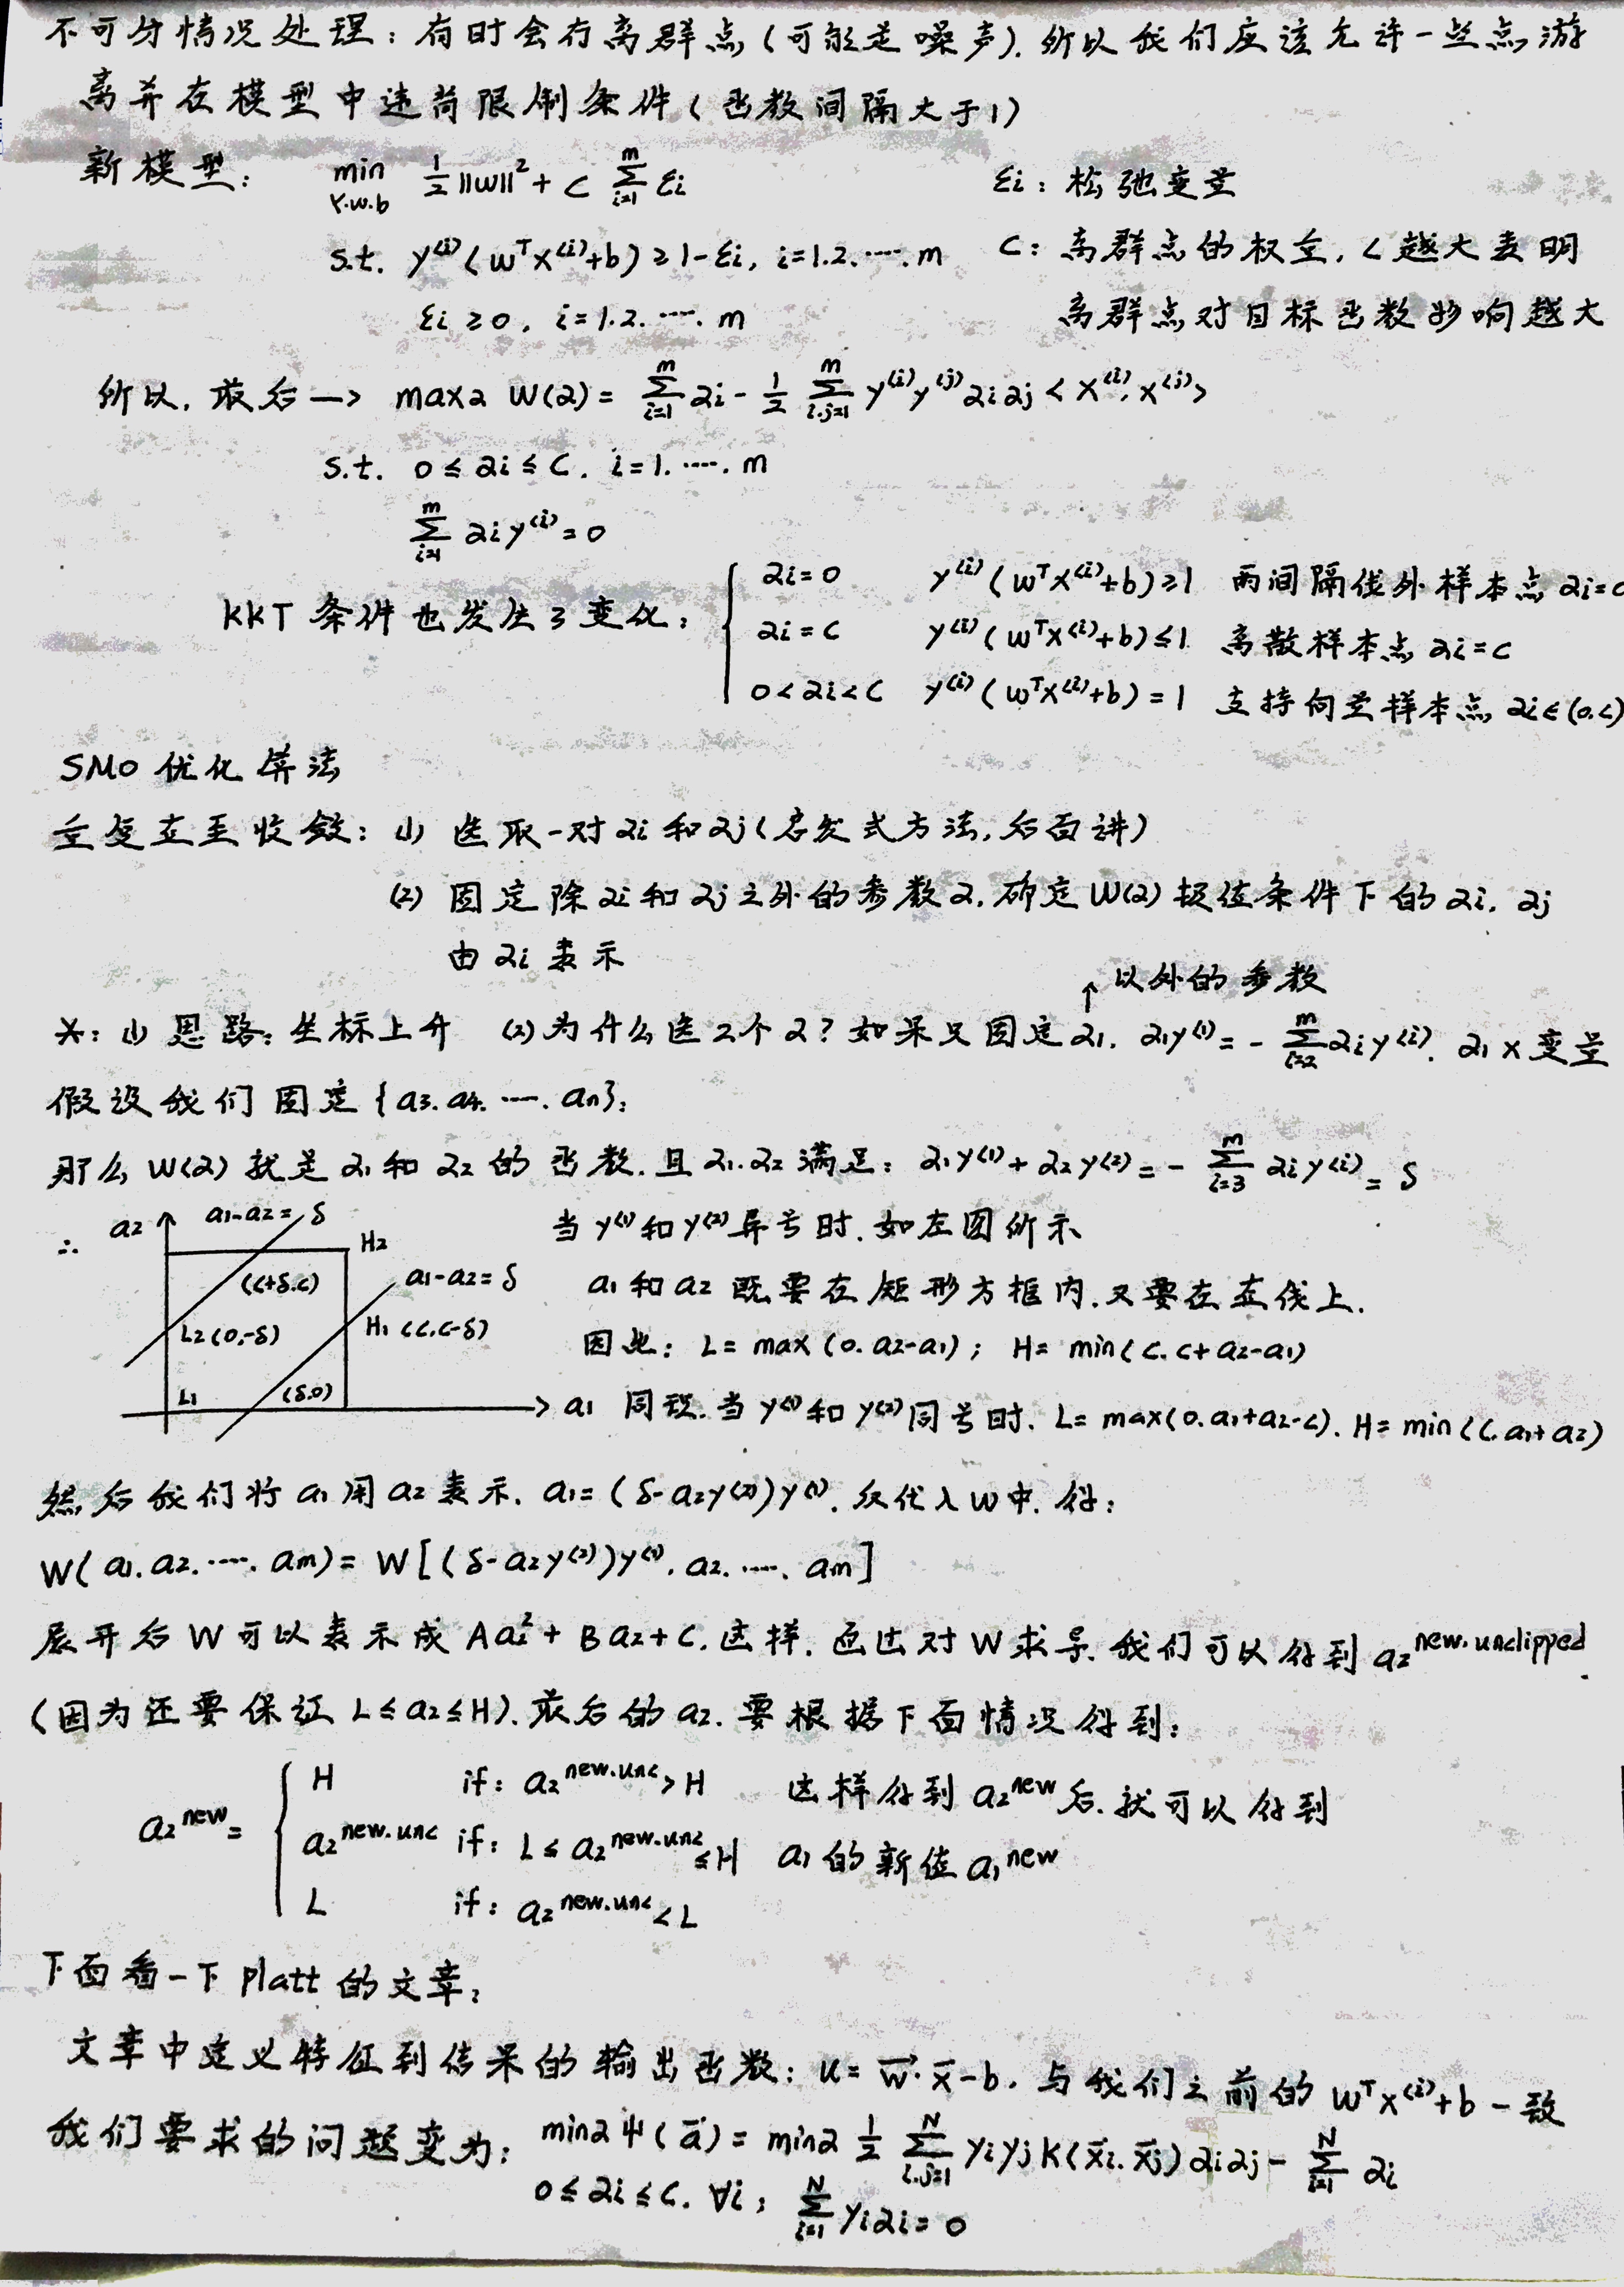 不可分情况处理：有时会有离群点(可能是噪声).所以我们应该允许一些点游
离并在模型中违背限制条件(函数间隔大于1)
新模型： min γ.w.b 1/2 ||w||² + C Σ(i=1..m) εi    εi：松弛变量
s.t. y^(i)(w^T x^(i)+b) ≥ 1-εi, i=1.2.….m    C：离群点的权重, C越大表明
εi ≥ 0, i=1.2.….m    离群点对目标函数影响越大
所以, 最后 → max α W(α) = Σ(i=1..m) αi - 1/2 Σ(i.j=1..m) y^(i)y^(j)αiαj<x^(i), x^(j)>
s.t. 0 ≤ αi ≤ C. i=1.….m
Σ(i=1..m) αi y^(i) = 0
KKT条件也发生了变化：
αi=0    y^(i)(w^T x^(i)+b) ≥ 1  两间隔线外样本点 αi=0
αi=C    y^(i)(w^T x^(i)+b) ≤ 1  离散样本点 αi=C
0<αi<C    y^(i)(w^T x^(i)+b) = 1  支持向量样本点 αi∈(0.C)
SMO优化算法
重复直至收敛：(1) 选取一对αi和αj(启发式方法,后面讲)
(2) 固定除αi和αj之外的参数α.确定W(α)极值条件下的αi. αj
由αi表示
↑以外的参数
*：(1)思路：坐标上升  (2)为什么选2个α? 如果只固定α1. α1y^(1) = - Σ(i=2..m) αi y^(i). α1 ×变量
假设我们固定{a3.a4.….an}：
那么W(α)就是α1和α2的函数.且α1.α2满足：α1y^(1)+α2y^(2) = - Σ(i=3..m) αi y^(i) = δ
∴ a2  a1-a2=δ    当y^(1)和y^(2)异号时.如左图所示
H2
(C+δ.C)  a1-a2=δ    a1和a2既要在矩形方框内.又要在直线上.
L2(0,-δ)  H1(C.C-δ)    因此：L= max(0. a2-a1)； H= min(C. C+a2-a1)
L1  (δ.0)  a1  同理.当y^(1)和y^(2)同号时. L= max(0. a1+a2-C). H= min(C. a1+a2)
然后我们将a1用a2表示. a1=(δ-a2y^(2))y^(1). 反代入W中. 得：
W(a1.a2.….am) = W[(δ-a2y^(2))y^(1). a2.….am]
展开后W可以表示成 Aa2²+Ba2+C. 这样. 通过对W求导.我们可以得到a2^new.unclipped
(因为还要保证L≤a2≤H).最后的a2.要根据下面情况得到：
H    if：a2^new.unc > H    这样得到a2^new后.就可以得到
a2^new =  a2^new.unc  if：L ≤ a2^new.unc ≤ H  a1的新值a1^new
L    if：a2^new.unc < L
下面看一下platt的文章：
文章中定义特征到结果的输出函数：u= w⃗·x⃗-b. 与我们之前的w^T x^(i)+b一致
我们要求的问题变为：min α ψ(a⃗) = min α 1/2 Σ(i.j=1..N) yiyjk(x⃗i.x⃗j)αiαj - Σ(i=1..N) αi
0 ≤ αi ≤ C. ∀i； Σ(i=1..N) yiαi = 0